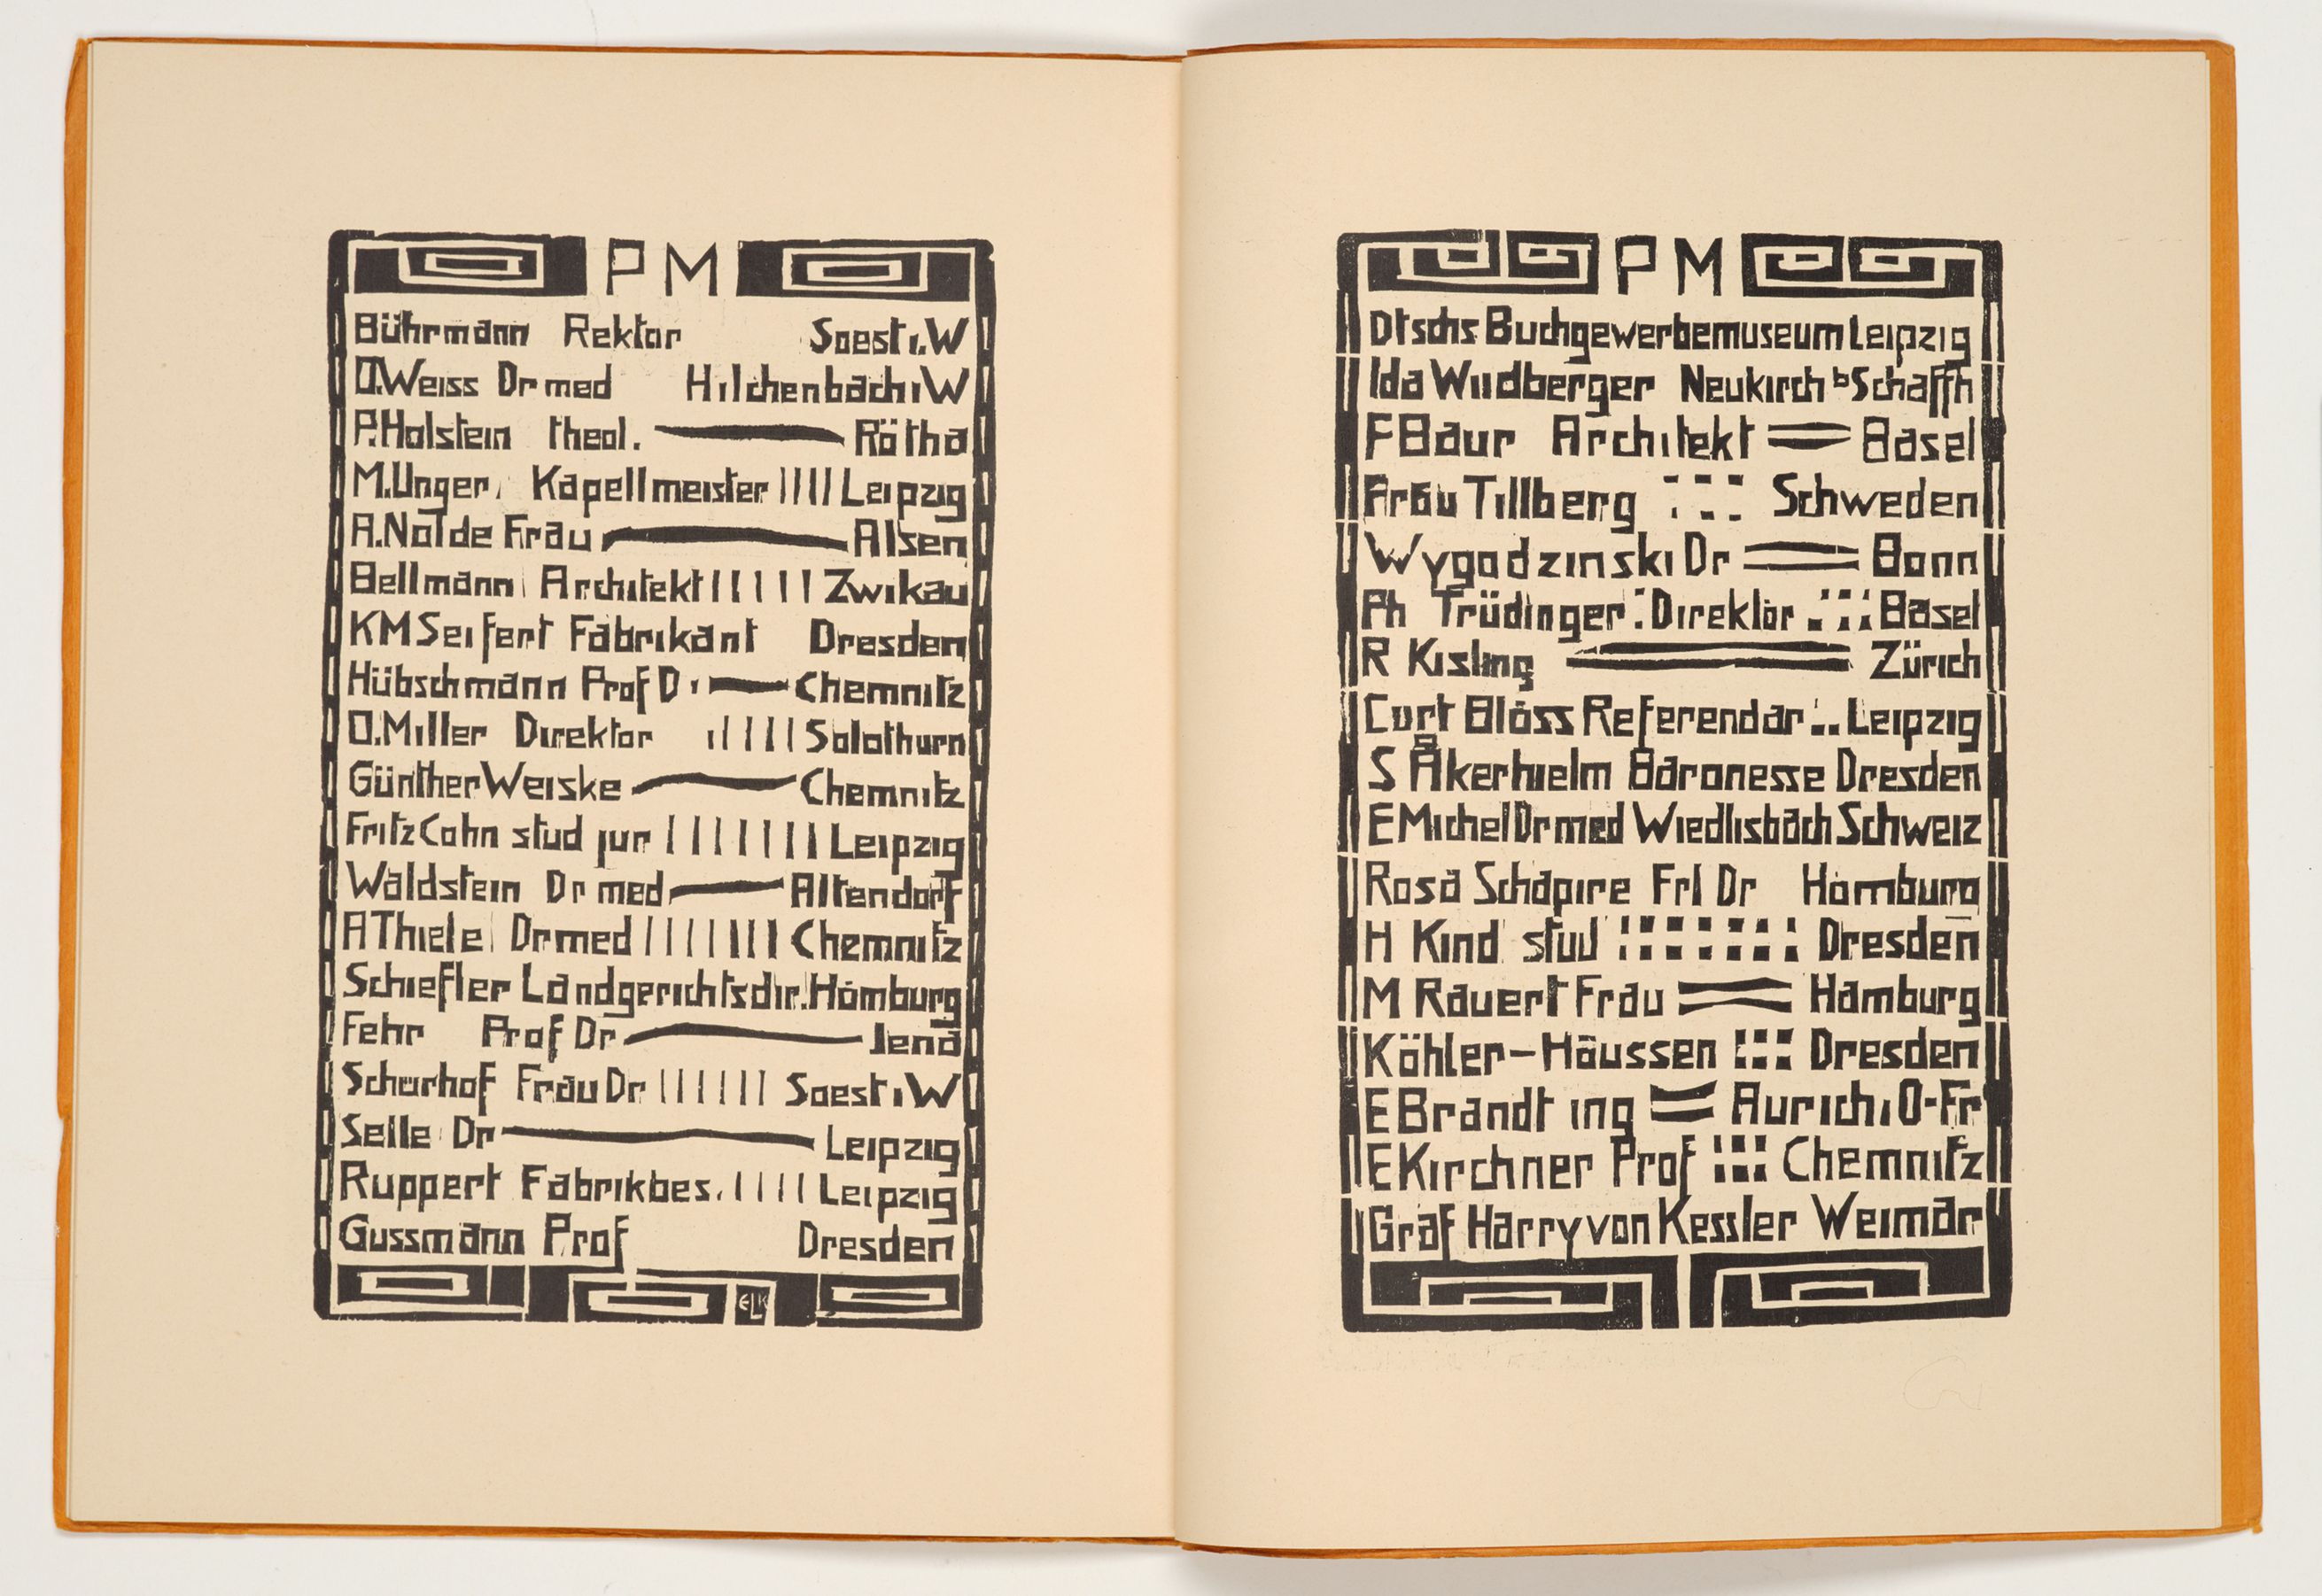 PM
Bührmann Rektor Soest i.W
O.Weiss Dr med Hilchenbach i W
P.Holstein theol. Rötha
M.Unger Kapellmeister Leipzig
A.Nolde Frau Alsen
Bellmann Architekt Zwikau
KM Seifert Fabrikant Dresden
Hübschmann Prof D r Chemnitz
O.Miller Direktor Solothurn
Günther Weiske Chemnitz
Fritz Cohn stud jur Leipzig
Waldstein Dr med Altendorf
A Thiele Dr med Chemnitz
Schiefler Landgerichtsdir. Hamburg
Fehr Prof Dr Jena
Frau Dr Soest i W
Selle Dr Leipzig
Ruppert Fabrikbes. Leipzig
Gussmann Prof Dresden
ELK
PM
Dtschs Buchgewerbemuseum Leipzig
Ida Neukirch b Schaffh
F Baur Architekt Basel
Frau Tillberg Schweden
Wygodzinski Dr Bonn
Ph Trüdinger Direktor Basel
R Kisling Zürich
Curt Gloss Referendar Leipzig
S Åkerhielm Baronesse Dresden
E Michel Dr med Wiedlisbach Schweiz
Rosa Schapire Frl Dr Hamburg
H Kind stud Dresden
M Rauert Frau Hamburg
Köhler-Haussen Dresden
E Brandt ing Aurich i O-Fr
E Kirchner Prof Chemnitz
Graf Harry von Kessler Weimar